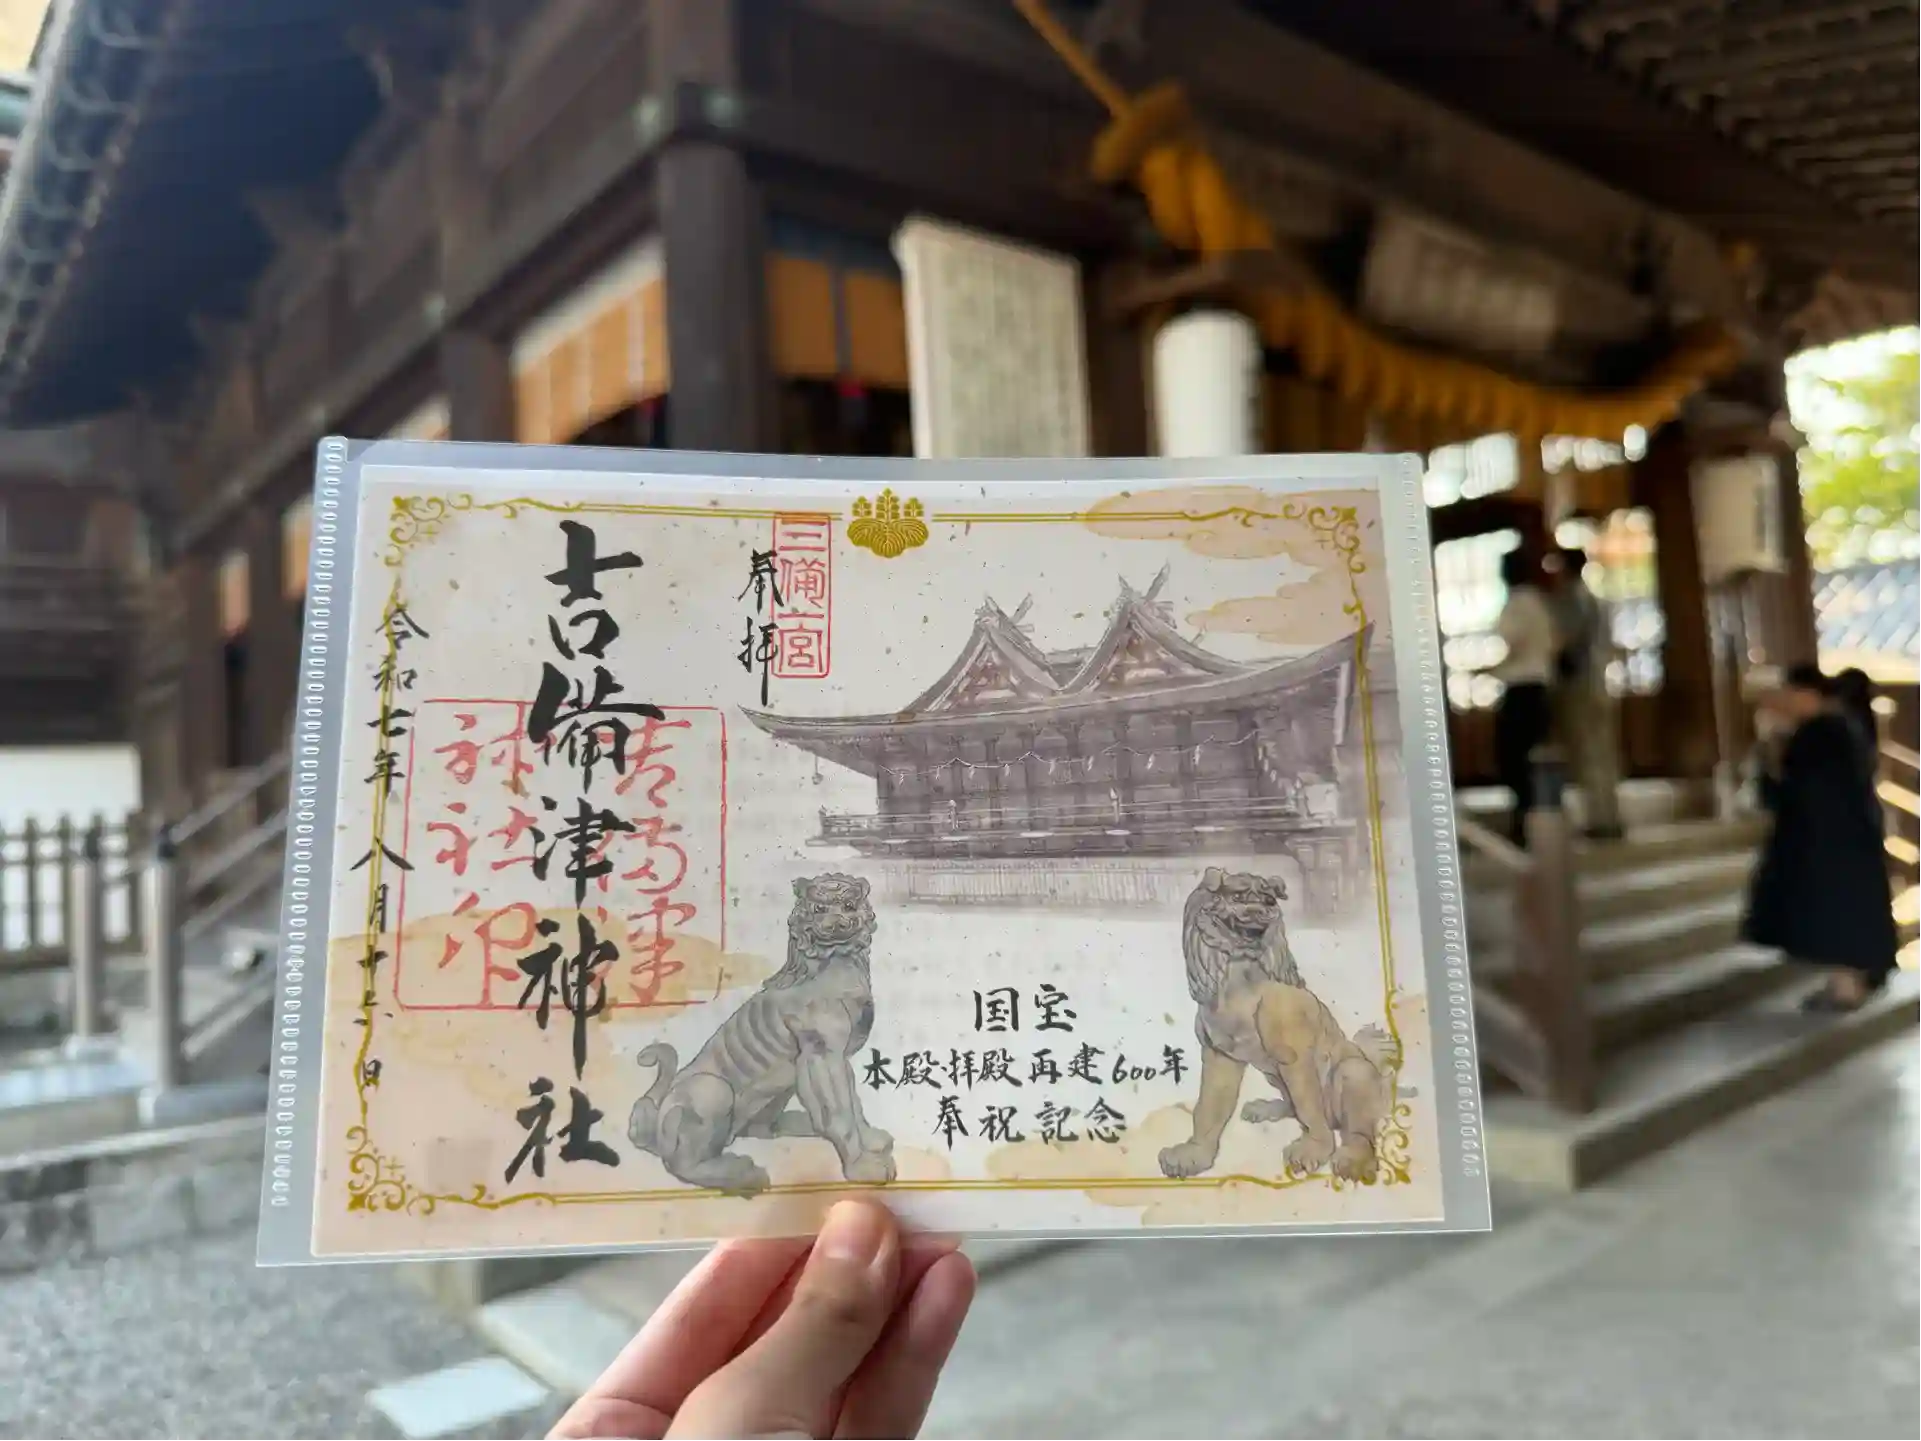 三備一宮
奉拝
吉備津神社
吉備津
神社印
令和七年八月十六日
国宝
本殿・拝殿再建600年
奉祝記念